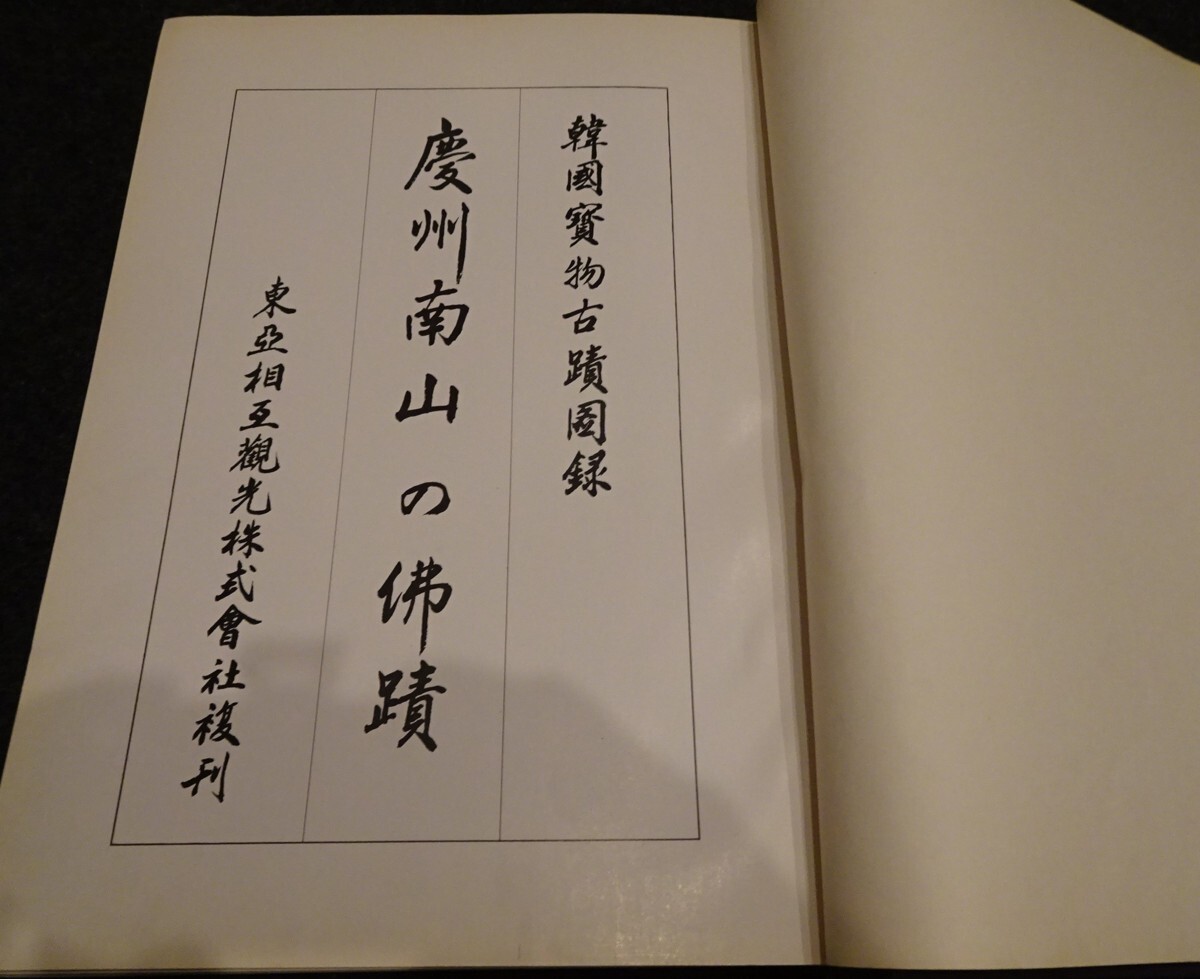 韓國寶物古蹟圖録
慶州南山の佛蹟
東亞相互觀光株式會社複刊